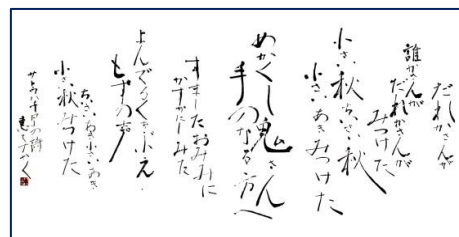 だれかさんが
誰かさんが
だれかさんが
みつけた
小さい秋ちいさい秋
小さいあきみつけた
めかくし鬼さん
手のなる方へ
すましたおみみに
かすかにしみた
よんでるくちぶえ
もずの声
ちいさいあき小さいあき
小さい秋みつけた
サトウハチローの詩